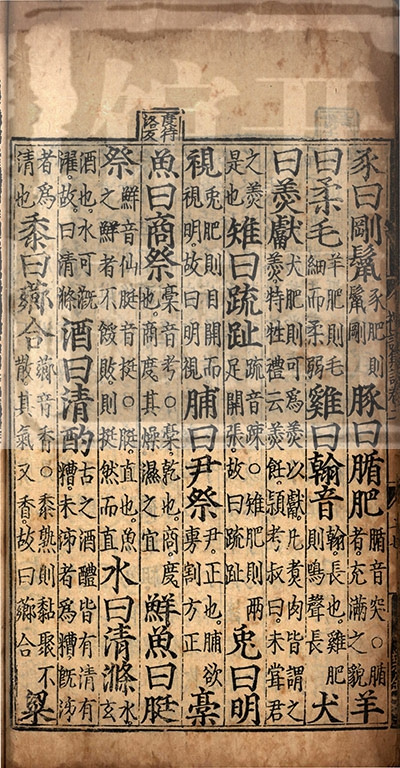 度待洛反
豕曰剛鬣豕肥則鬣剛豚曰腯肥腯音突○腯者充滿之貌羊
曰柔毛羊肥則毛細而柔弱雞曰翰音翰長也雞肥則鳴聲長犬
曰羹獻犬肥則可為羹以獻凡煮肉皆謂之羹特牲禮云羹飪潁考叔曰未甞君
之羹是也雉曰疏趾疏音疎○雉肥則兩足開張故曰疏趾兎曰明
視兎肥則目開而視明故曰明視脯曰尹祭尹正也脯欲專割方正槀
魚曰商祭槀音考○槀乾也商度也商度其燥濕之宜鮮魚曰脡
祭鮮音仙脡音挺○脡直也魚之鮮者不餒敗則挺然而直水曰清滌水玄
酒也水可溉濯故曰清滌酒曰清酌古之酒醴皆有清有糟未泲者為糟旣泲
者為清也黍曰薌合薌音香○黍熟則黏聚不散其氣又香故曰薌合粱